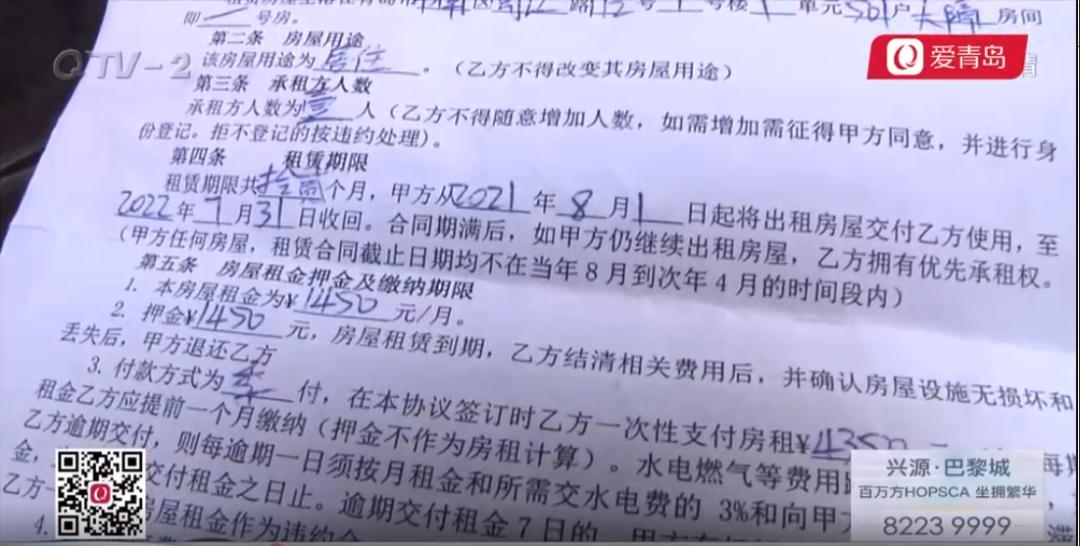 QTV-2
爱青岛
即 号房。
单元501户 房间
第二条 房屋用途
该房屋用途为居住。（乙方不得改变其房屋用途）
第三条 承租方人数
承租方人数为 人（乙方不得随意增加人数，如需增加需征得甲方同意，并进行身
份登记。拒不登记的按违约处理）。
第四条 租赁期限
租赁期限共 个月，甲方从2021年8月1日起将出租房屋交付乙方使用，至
2022年7月31日收回。合同期满后，如甲方仍继续出租房屋，乙方拥有优先承租权。
（甲方任何房屋，租赁合同截止日期均不在当年8月到次年4月的时间段内）
第五条 房屋租金押金及缴纳期限
1. 本房屋租金为¥1450元/月。
2. 押金¥1450元，房屋租赁到期，乙方结清相关费用后，并确认房屋设施无损坏和
丢失后，甲方退还乙方
3. 付款方式为季付，在本协议签订时乙方一次性支付房租¥4350
租金乙方应提前一个月缴纳（押金不作为房租计算）。水电燃气等费用
乙方逾期交付，则每逾期一日须按月租金和所需交水电费的3%和向甲
金， 交付租金之日止。逾期交付租金7日的，
乙方 屋租金作为违约金
4.
兴源·巴黎城
百万方HOPSCA 坐拥繁华
8223 9999